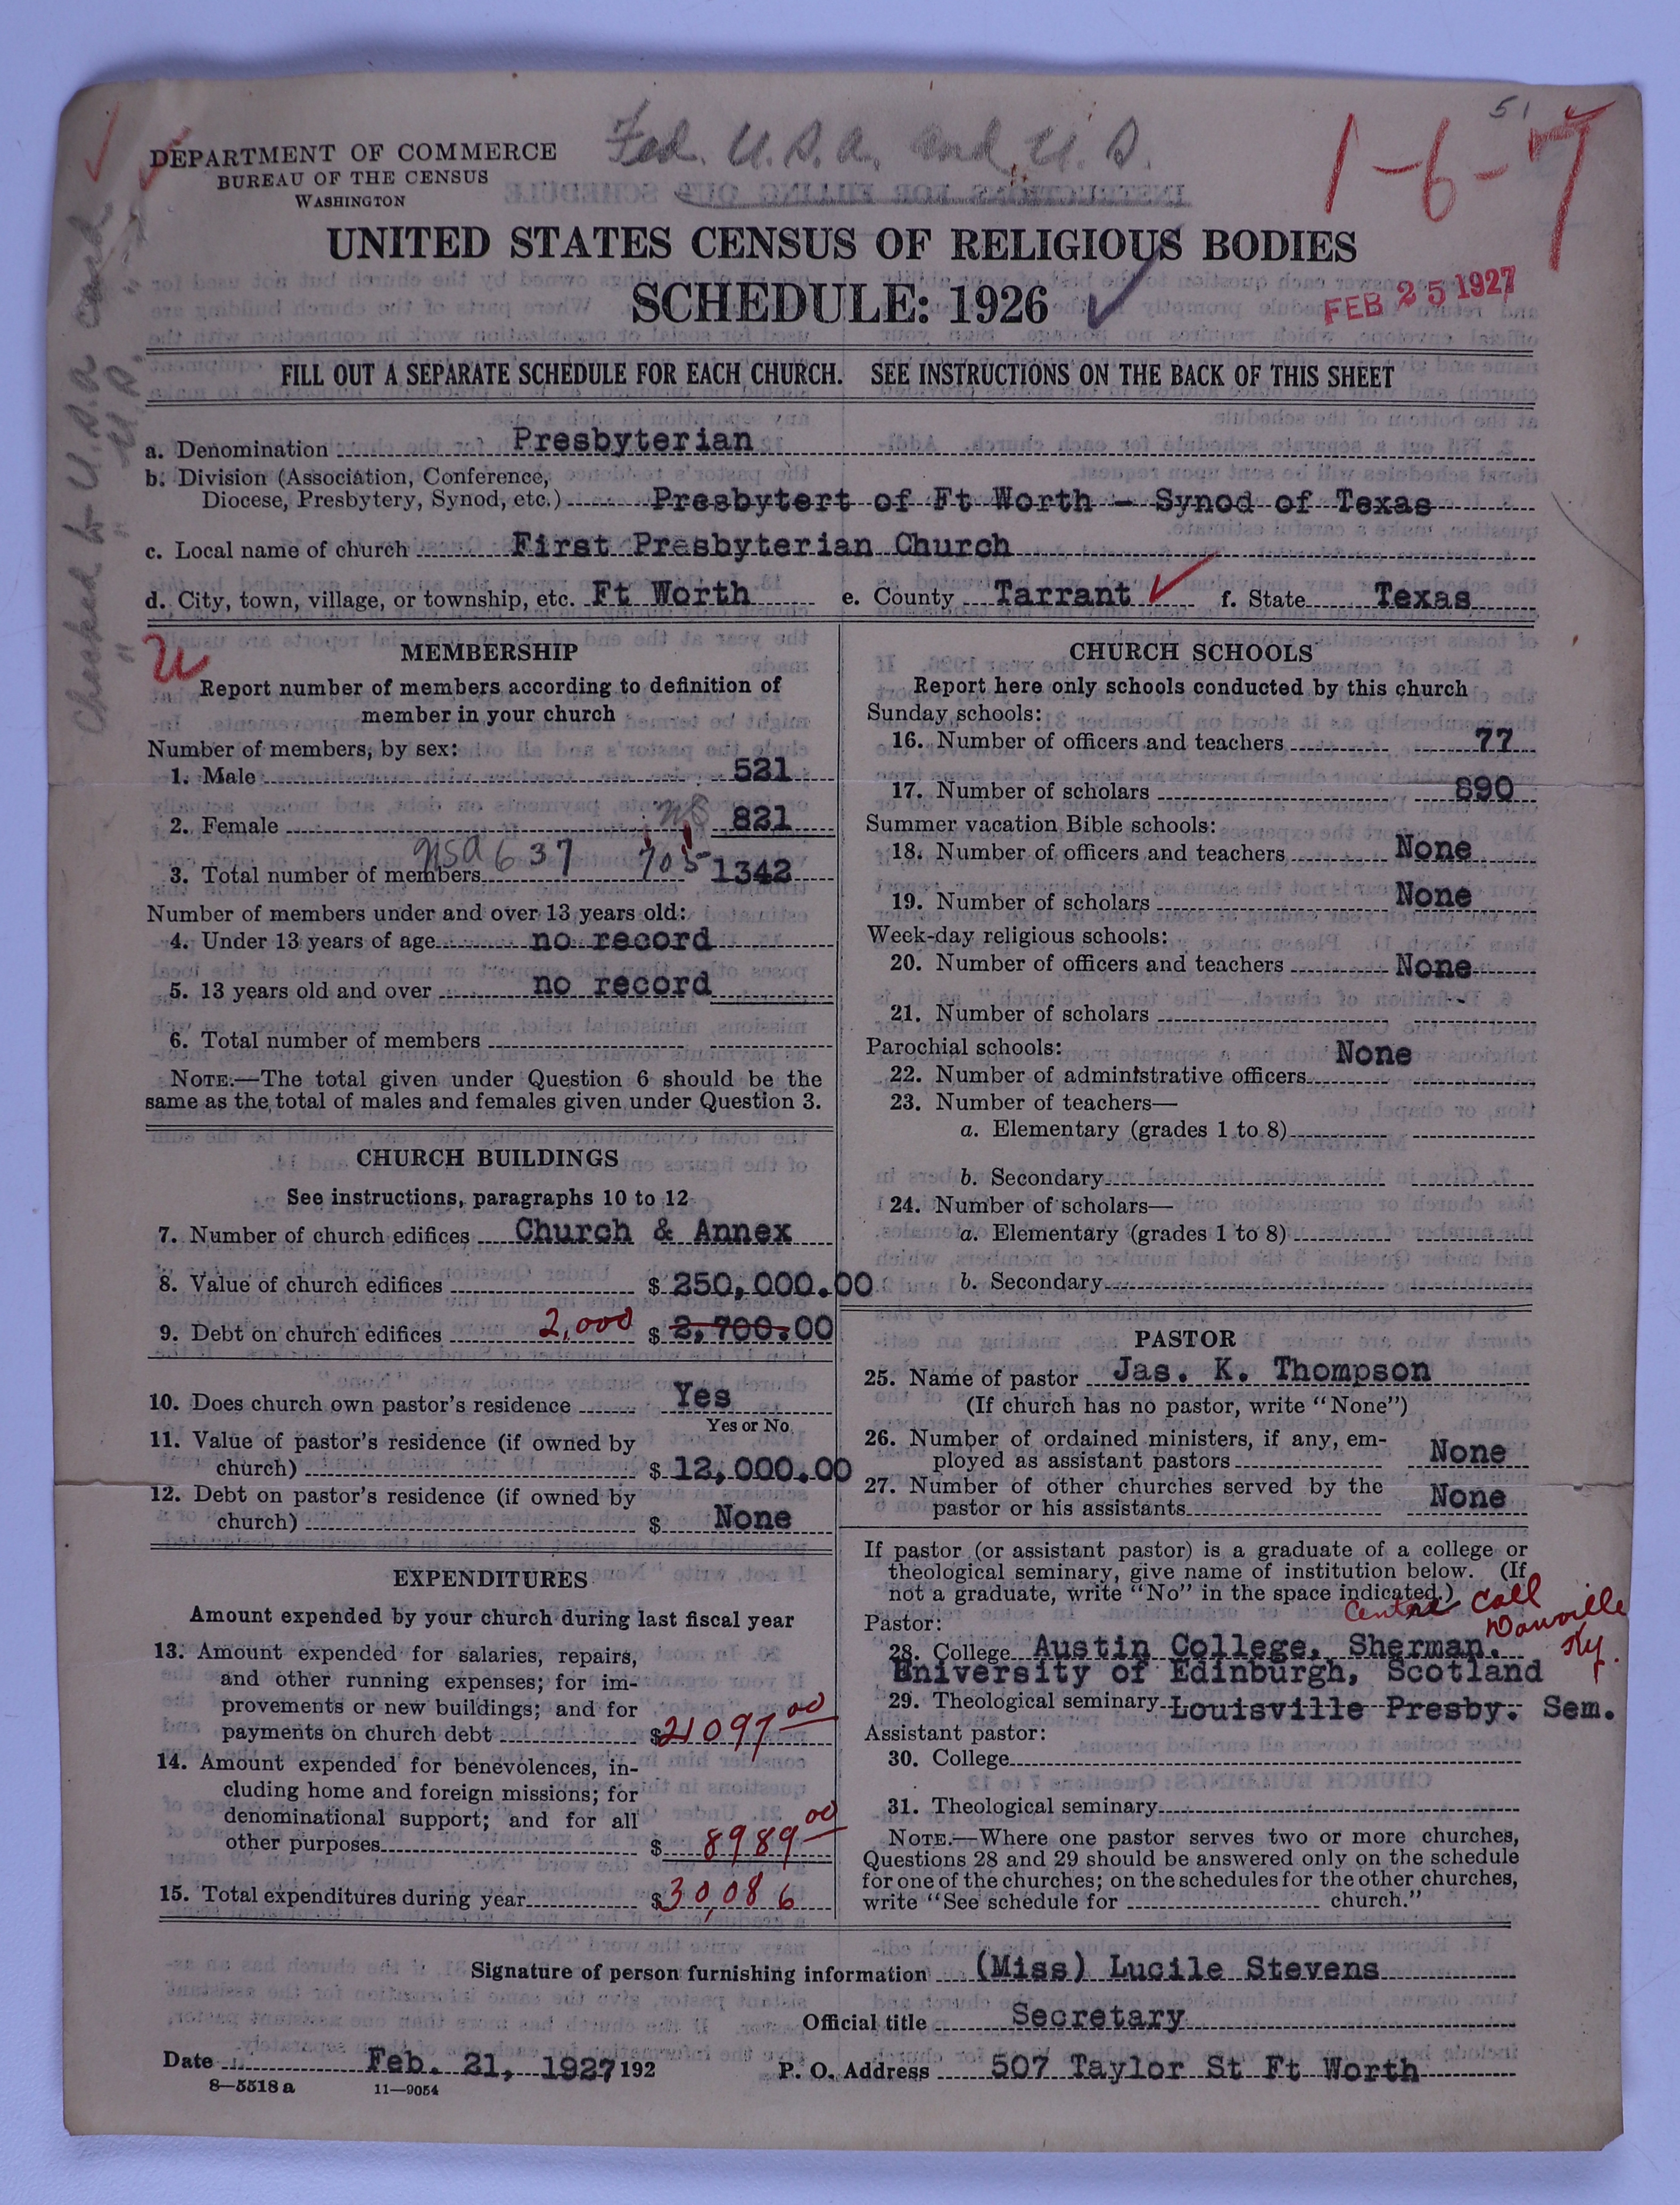 51
DEPARTMENT OF COMMERCE
BUREAU OF THE CENSUS
WASHINGTON
Fed. U.S.A. and U.S.
1-6-7
UNITED STATES CENSUS OF RELIGIOUS BODIES
SCHEDULE: 1926
FEB 25 1927
FILL OUT A SEPARATE SCHEDULE FOR EACH CHURCH. SEE INSTRUCTIONS ON THE BACK OF THIS SHEET
Checked to U.S.A card
" " U.S. "
a. Denomination Presbyterian
b. Division (Association, Conference,
Diocese, Presbytery, Synod, etc.) Presbytert of Ft Worth - Synod of Texas
c. Local name of church First Presbyterian Church
d. City, town, village, or township, etc. Ft Worth e. County Tarrant f. State Texas
U
MEMBERSHIP
Report number of members according to definition of
member in your church
Number of members, by sex:
1. Male 521
2. Female US 821
3. Total number of members USA 637 705 1342
Number of members under and over 13 years old:
4. Under 13 years of age no record
5. 13 years old and over no record
6. Total number of members
NOTE.—The total given under Question 6 should be the
same as the total of males and females given under Question 3.
CHURCH BUILDINGS
See instructions, paragraphs 10 to 12
7. Number of church edifices Church & Annex
8. Value of church edifices $ 250,000.00
9. Debt on church edifices 2,000 $ 2,700.00
10. Does church own pastor's residence Yes
Yes or No
11. Value of pastor's residence (if owned by
church) $ 12,000.00
12. Debt on pastor's residence (if owned by
church) $ None
EXPENDITURES
Amount expended by your church during last fiscal year
13. Amount expended for salaries, repairs,
and other running expenses; for im-
provements or new buildings; and for
payments on church debt $21097 00
14. Amount expended for benevolences, in-
cluding home and foreign missions; for
denominational support; and for all
other purposes $ 8989 00
15. Total expenditures during year $30,086
CHURCH SCHOOLS
Report here only schools conducted by this church
Sunday schools:
16. Number of officers and teachers 77
17. Number of scholars 890
Summer vacation Bible schools:
18. Number of officers and teachers None
19. Number of scholars None
Week-day religious schools:
20. Number of officers and teachers None
21. Number of scholars
Parochial schools: None
22. Number of administrative officers
23. Number of teachers—
a. Elementary (grades 1 to 8)
b. Secondary
24. Number of scholars—
a. Elementary (grades 1 to 8)
b. Secondary
PASTOR
25. Name of pastor Jas. K. Thompson
(If church has no pastor, write "None")
26. Number of ordained ministers, if any, em-
ployed as assistant pastors None
27. Number of other churches served by the
pastor or his assistants None
If pastor (or assistant pastor) is a graduate of a college or
theological seminary, give name of institution below. (If
not a graduate, write "No" in the space indicated.)
Centre Coll
Danville
Ky.
Pastor:
28. College Austin College, Sherman.
University of Edinburgh, Scotland
29. Theological seminary Louisville Presby. Sem.
Assistant pastor:
30. College
31. Theological seminary
NOTE.—Where one pastor serves two or more churches,
Questions 28 and 29 should be answered only on the schedule
for one of the churches; on the schedules for the other churches,
write "See schedule for church."
Signature of person furnishing information (Miss) Lucile Stevens
Official title Secretary
Date Feb. 21, 1927 192 P. O. Address 507 Taylor St Ft Worth
8—5518 a 11—9054